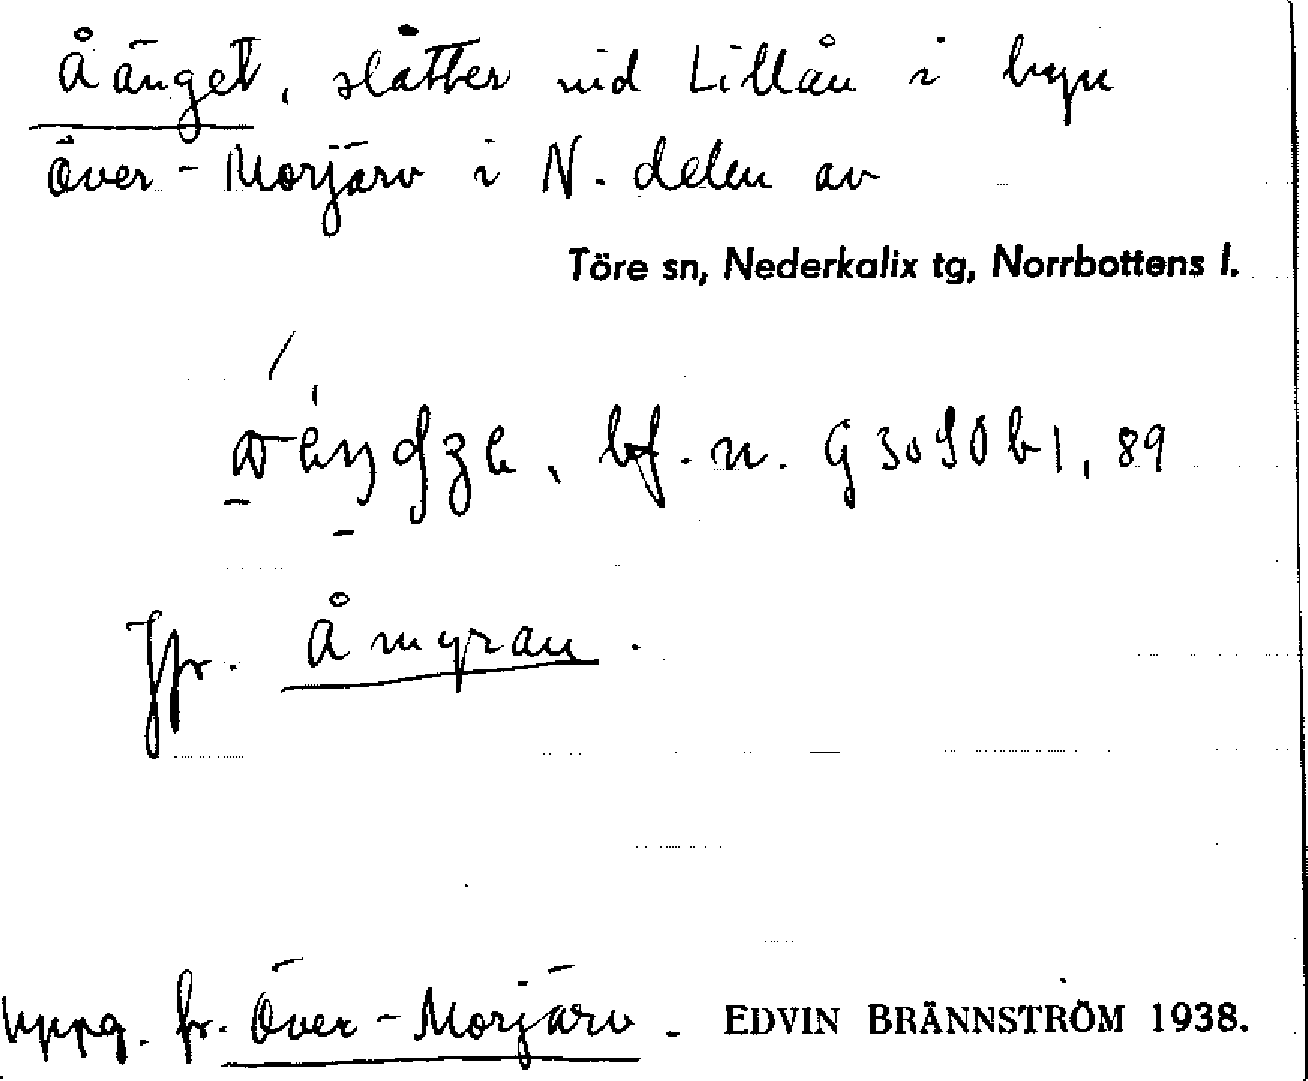 Åänget, slåtter vid Lillån i byn
Över-Morjärv i N. delen av
Töre sn, Nederkalix tg, Norrbottens l.
bf. n.
Jfr. Åmyran.
Uppg. fr. Över-Morjärv. EDVIN BRÄNNSTRÖM 1938.